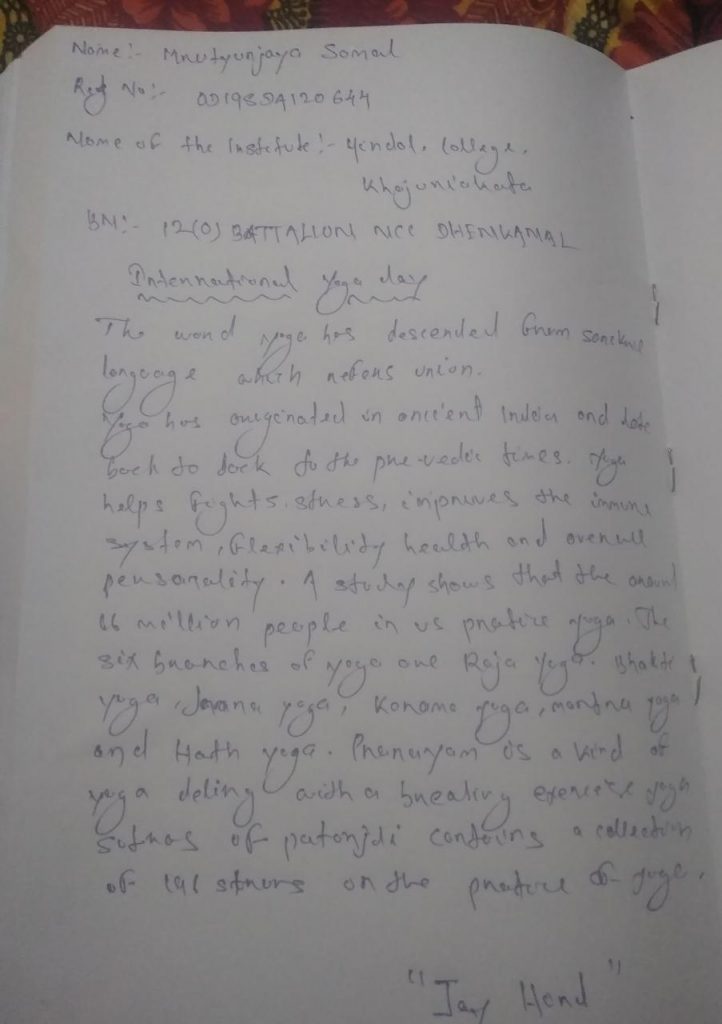 Name:- Mrutyunjaya Somal
Regd No:- OD19SDA120644
Name of the Institute:- Hindol. College.
Khajuriakata
BN:- 12(O) BATTALION NCC DHENKANAL
International yoga day
The word yoga has descended from
language which refers union.
Yoga has originated in ancient India and date
back to back to the pre-vedic times. Yoga
helps fights stress, improves the immune
system, flexibility health and overall
personality. A study shows that the around
million people in us pratice yoga. The
six branches of yoga are Raja Yoga. Bhakti
yoga, Jnana yoga, Karama yoga, mantra yoga
and Hath yoga. Pranayam is a kind of
yoga deling with a breating exercise yoga
sutras of patanjali contains a collection
of on the pratice of yoga.
"Jay Hend"